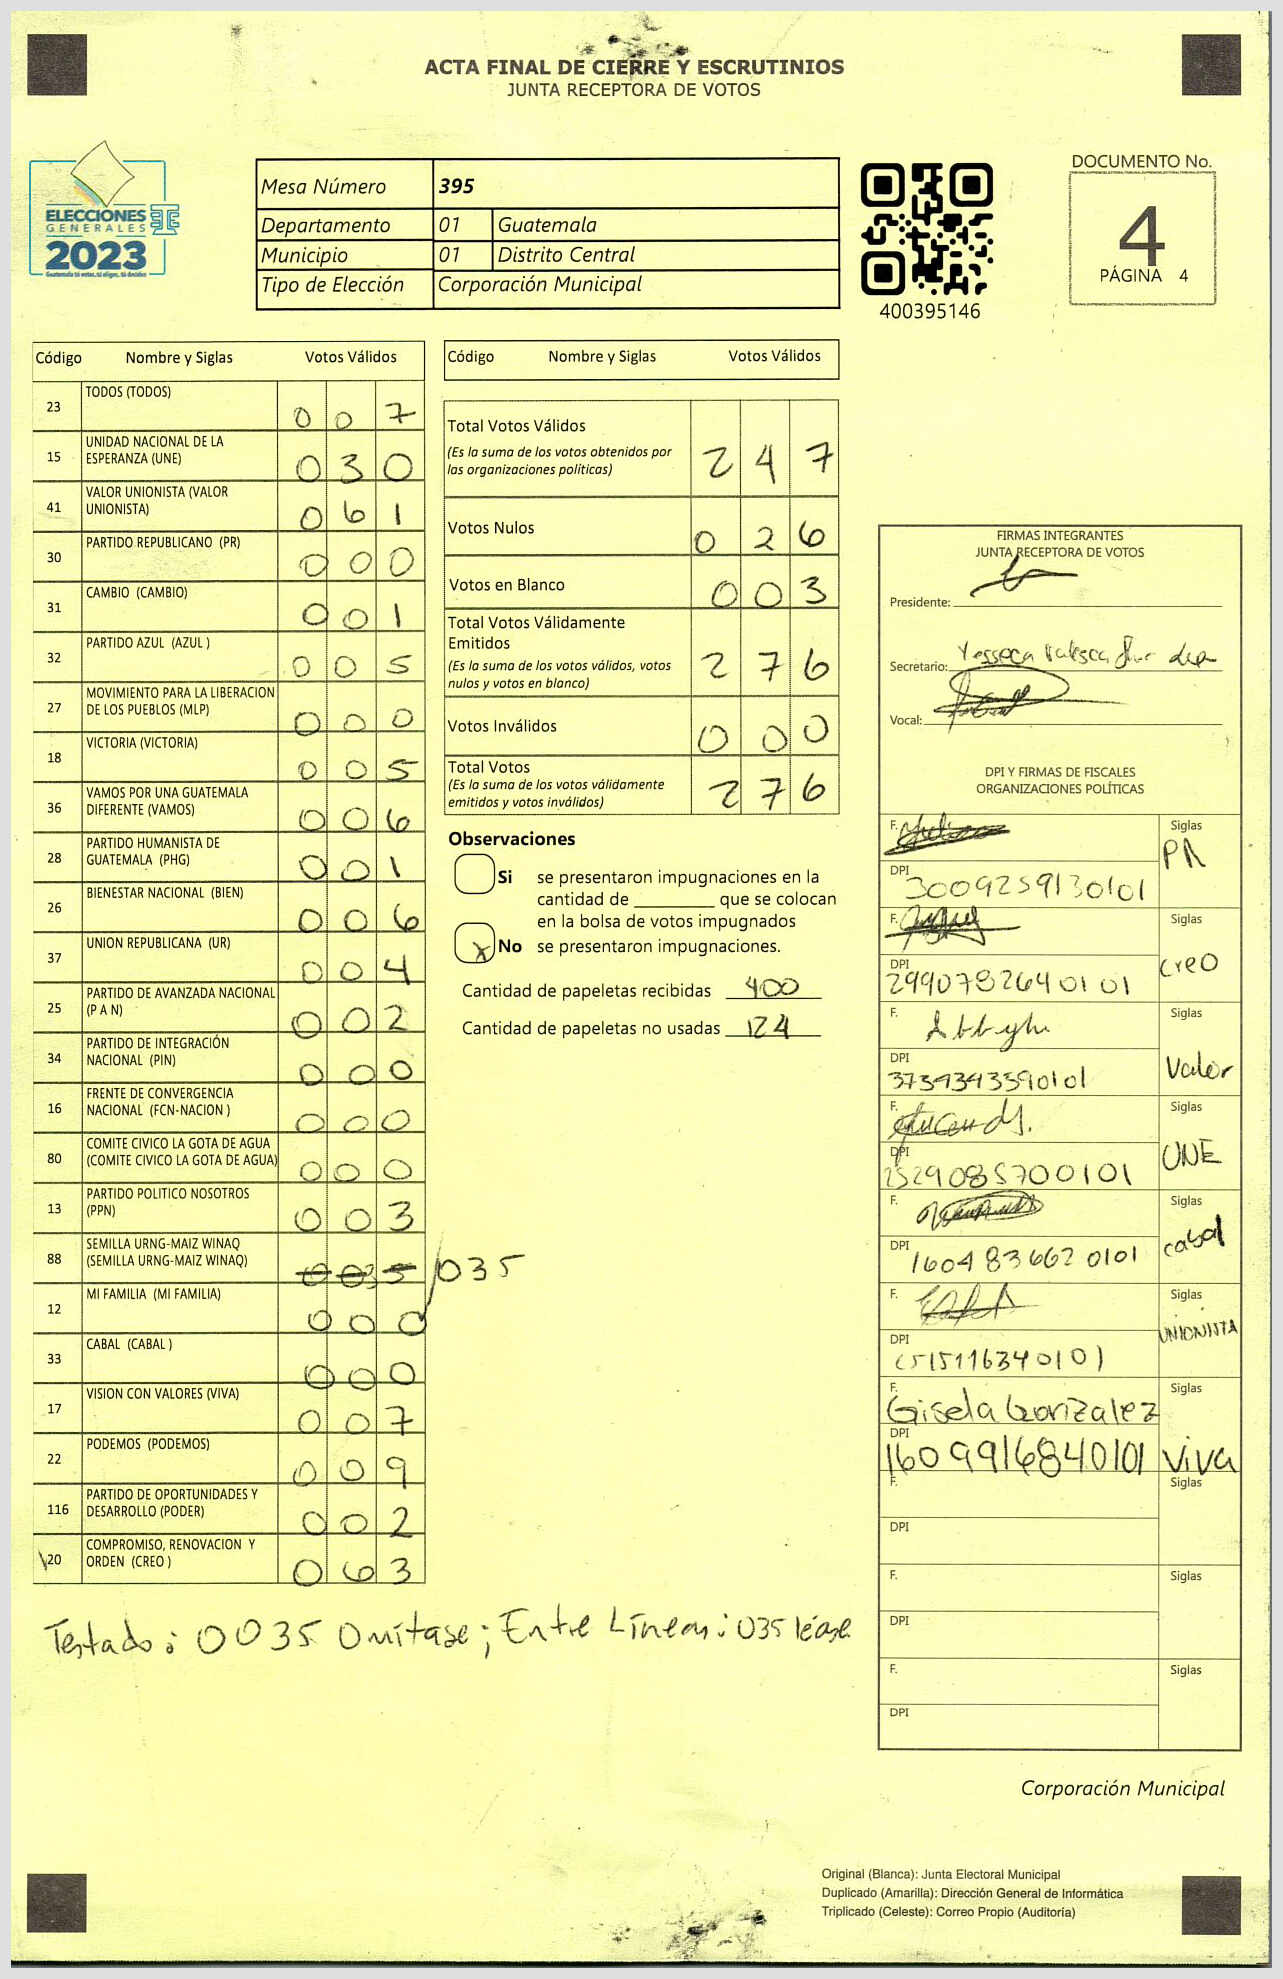 ACTA FINAL DE CIERRE Y ESCRUTINIOS
JUNTA RECEPTORA DE VOTOS
ELECCIONES
GENERALES
2023
Guatemala tú votas, tú eliges, tú decides
Mesa Número 395
Departamento 01 Guatemala
Municipio 01 Distrito Central
Tipo de Elección Corporación Municipal
400395146
DOCUMENTO No.
4
PÁGINA 4
Código Nombre y Siglas Votos Válidos
23 TODOS (TODOS) 0 0 7
15 UNIDAD NACIONAL DE LA ESPERANZA (UNE) 0 3 0
41 VALOR UNIONISTA (VALOR UNIONISTA) 0 6 1
30 PARTIDO REPUBLICANO (PR) 0 0 0
31 CAMBIO (CAMBIO) 0 0 1
32 PARTIDO AZUL (AZUL ) 0 0 5
27 MOVIMIENTO PARA LA LIBERACION DE LOS PUEBLOS (MLP) 0 0 0
18 VICTORIA (VICTORIA) 0 0 5
36 VAMOS POR UNA GUATEMALA DIFERENTE (VAMOS) 0 0 6
28 PARTIDO HUMANISTA DE GUATEMALA (PHG) 0 0 1
26 BIENESTAR NACIONAL (BIEN) 0 0 6
37 UNION REPUBLICANA (UR) 0 0 4
25 PARTIDO DE AVANZADA NACIONAL (P A N) 0 0 2
34 PARTIDO DE INTEGRACIÓN NACIONAL (PIN) 0 0 0
16 FRENTE DE CONVERGENCIA NACIONAL (FCN-NACION ) 0 0 0
80 COMITE CIVICO LA GOTA DE AGUA (COMITE CIVICO LA GOTA DE AGUA) 0 0 0
13 PARTIDO POLITICO NOSOTROS (PPN) 0 0 3
88 SEMILLA URNG-MAIZ WINAQ (SEMILLA URNG-MAIZ WINAQ) 0 03 5 035
12 MI FAMILIA (MI FAMILIA) 0 0 0
33 CABAL (CABAL ) 0 0 0
17 VISION CON VALORES (VIVA) 0 0 7
22 PODEMOS (PODEMOS) 0 0 9
116 PARTIDO DE OPORTUNIDADES Y DESARROLLO (PODER) 0 0 2
20 COMPROMISO, RENOVACION Y ORDEN (CREO ) 0 6 3
Testado: 0035 Omitase; Entre Líneas: 035 léase
Código Nombre y Siglas Votos Válidos
Total Votos Válidos 2 4 7
(Es la suma de los votos obtenidos por
las organizaciones políticas)
Votos Nulos 0 2 6
Votos en Blanco 0 0 3
Total Votos Válidamente
Emitidos 2 7 6
(Es la suma de los votos válidos, votos
nulos y votos en blanco)
Votos Inválidos 0 0 0
Total Votos 2 7 6
(Es la suma de los votos válidamente
emitidos y votos inválidos)
Observaciones
Si se presentaron impugnaciones en la
cantidad de ________ que se colocan
en la bolsa de votos impugnados
x No se presentaron impugnaciones.
Cantidad de papeletas recibidas 400
Cantidad de papeletas no usadas 124
FIRMAS INTEGRANTES
JUNTA RECEPTORA DE VOTOS
Presidente:
Secretario:
Vocal:
DPI Y FIRMAS DE FISCALES
ORGANIZACIONES POLÍTICAS
F. Siglas PR
DPI 3009259130101
F. Siglas creo
DPI 2990782640101
F. Siglas Valor
DPI 3734343390101
F. Siglas UNE
DPI 2529085700101
F. Siglas cabal
DPI 1604836620101
F. Siglas UNIONISTA
DPI
F. Gisela Gonzalez Siglas viva
DPI 1609916840101
F. Siglas
DPI
F. Siglas
DPI
F. Siglas
DPI
Corporación Municipal
Original (Blanca): Junta Electoral Municipal
Duplicado (Amarilla): Dirección General de Informática
Triplicado (Celeste): Correo Propio (Auditoría)